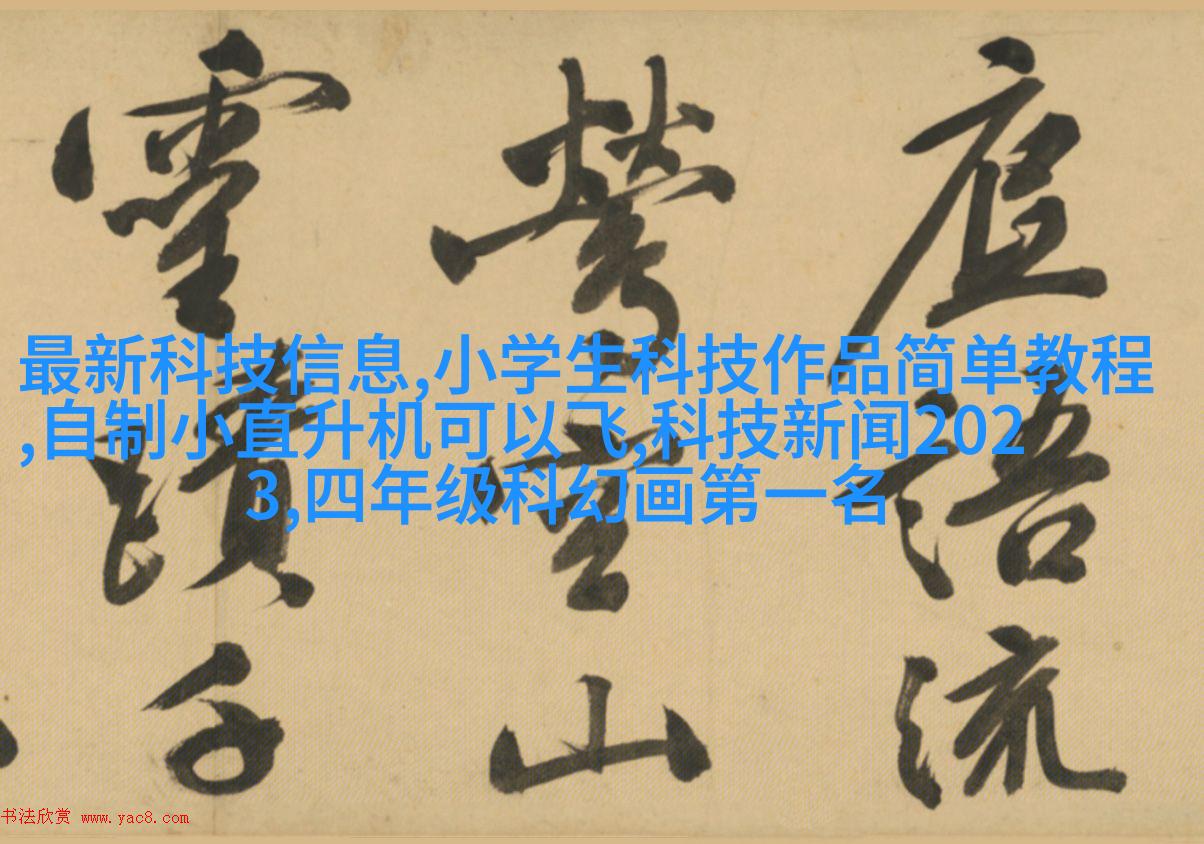 最新科技信息,小学生科技作品简单教程
,自制小直升机可以飞,科技新闻202
3,四年级科幻画第一名
語流
山
靈蹟千
书法欣赏 www.yac8.com